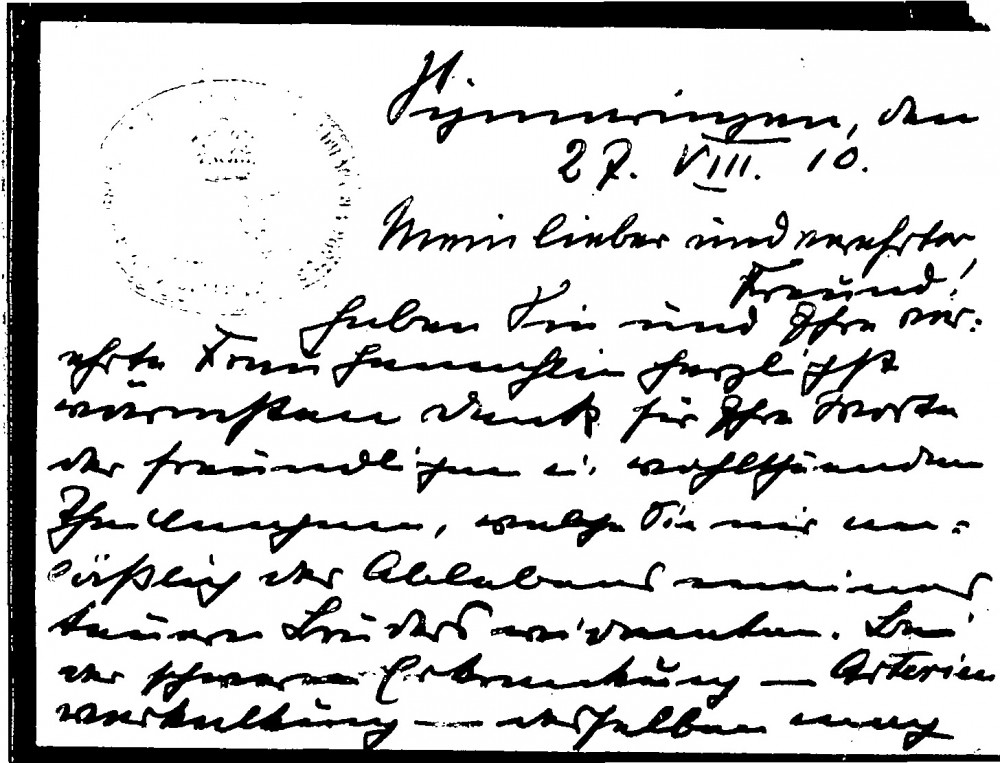 Sigmaringen, den
27. VIII. 10.
Mein lieber und verehrter
Freund!
Haben Sie und Ihre ver=
ehrte Frau Gemahlin herzlichst
wärmsten Dank für Ihre Worte
der freundlichen u. wohlthuenden
Theilnahme, welche Sie mir an=
läßlich des Ablebens meines
teuern Bruders widmeten. Bei
der schweren Erkrankung — Arterien
verkalkung — desselben mag